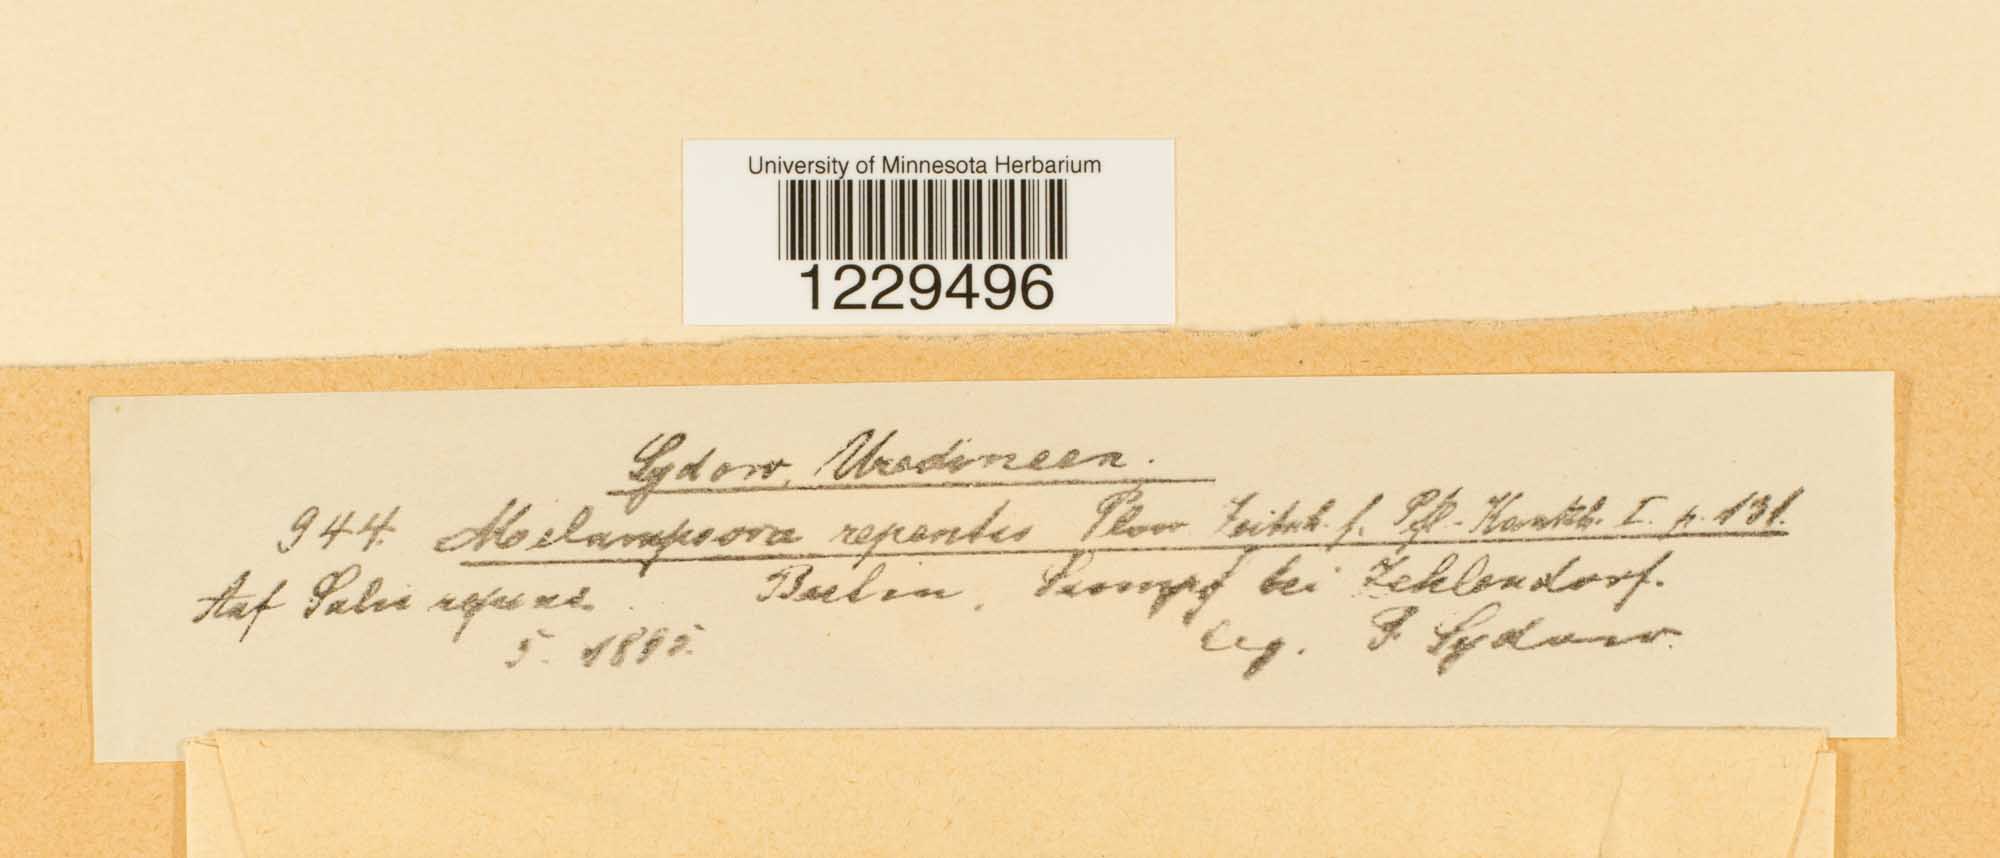 University of Minnesota Herbarium
1229496
Sydow, Uredineen.
944. Melampsora repentis Plow Zeitsch. f. Pfl.-Krankh. I. p. 131.
Auf Salix repens. Berlin, Sumpf bei Zehlendorf.
5. 1895. leg. P. Sydow.